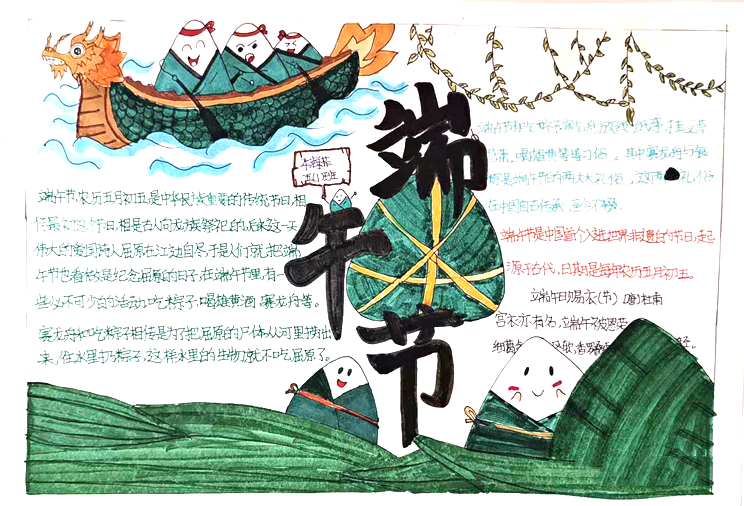 端午节
端午节,农历五月初五,是中华民族重要的传统节日,相
传最初的节日,相是古人向龙族祭祀的,后来这一天
伟大的爱国诗人屈原在江边自尽,于是人们就把端
午节也看做是纪念屈原的日子,在端午节里有一
些必不可少的活动:吃粽子,喝雄黄酒,赛龙舟等。
赛龙舟和吃粽子相传是为了把屈原的尸体从河里捞出
来,在水里扔粽子,这样水里的生物就不吃屈原了。
喝雄黄酒 习俗。其中赛龙舟与
是端午节的两大礼俗,这 礼俗
在中国自古传承,至今不辍。
端午节是中国首个入选世界非遗的节日,起
源于古代,日期是每年农历五月初五。
端午日赐衣(节) 唐杜甫
宫衣亦有名,端午被恩荣
细葛 香罗